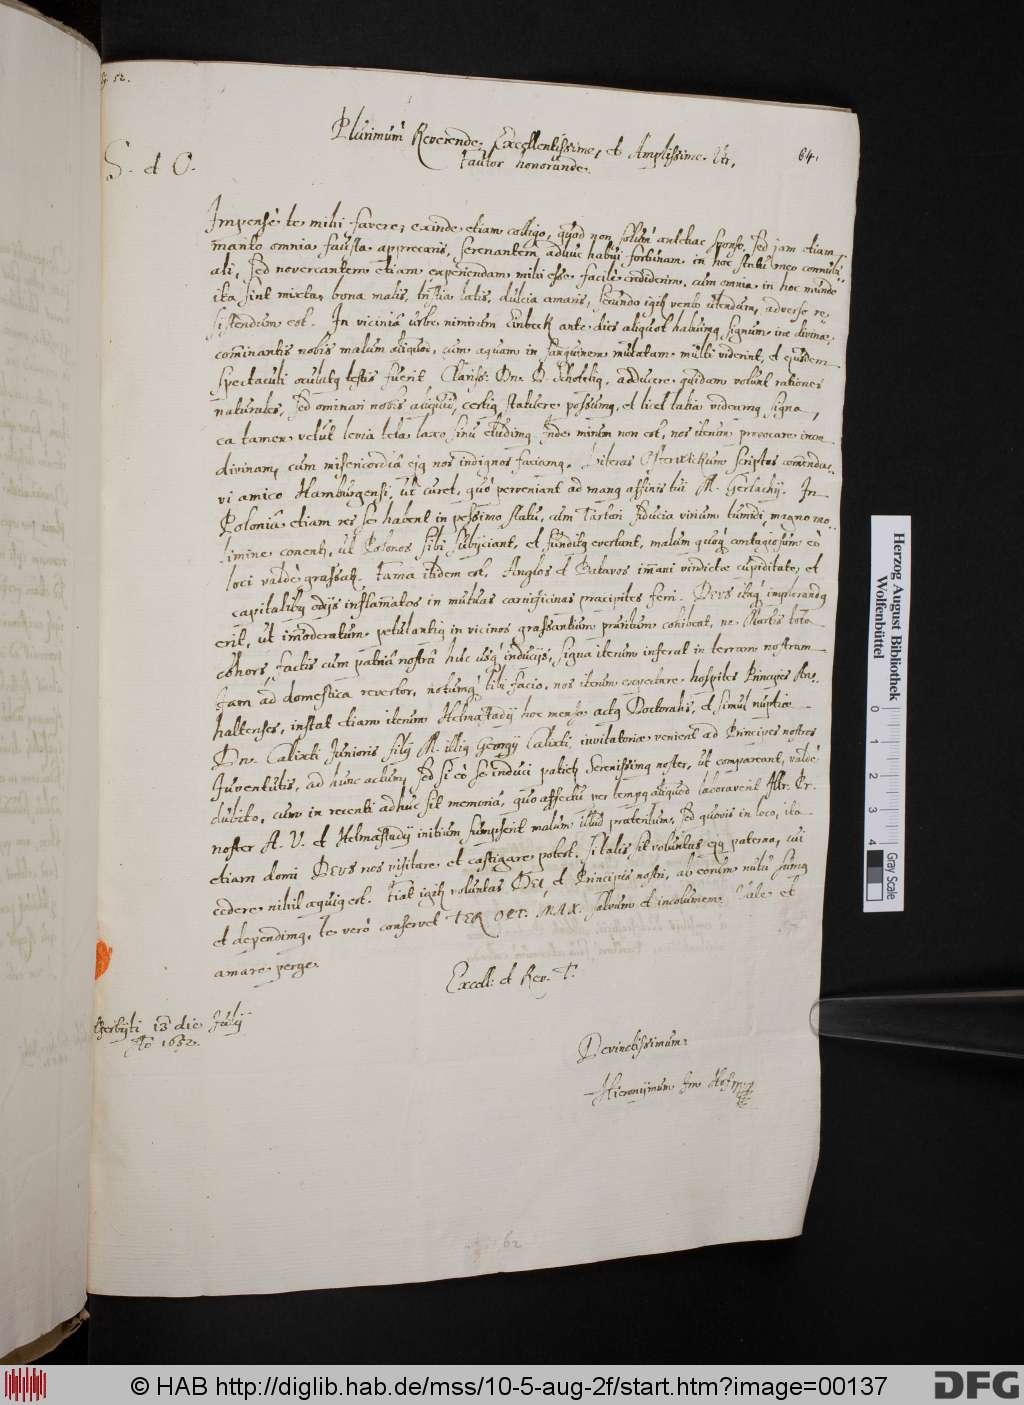 52.
Plurimum Reverende, Excellentissime, et Amplissime Vir,
64.
S. et O.
Fautor honorande.
Impense te mihi favere, exinde etiam colligo, quod non solum antehac sponso, sed jam etiam
manto omnia fausta apprecaris, serenantem adhuc habui fortunam in hoc statu meo connubi-
ali, sed novercantem etiam experiendam mihi esse facile crediderim, cum omnia in hoc mundo
ita sint mixta, bona malis, tristia laetis, dulcia amaris, secundo igitur vento utendum, adverso re-
sistendum est. In vicinia urbe nimirum Einbeck ante dies aliquot habuimus signum irae divinae,
comminantis nobis malum aliquod, cum aquam in sanguinem mutatam multi viderint, et ejusdem
spectaculi oculatus testis fuerit Clariss: Dn. D. adducere quidam volunt rationes
naturales, sed ominari nobis aliquid, certius statuere possumus, et licet talia videamus signa,
ea tamen velut levia tela laxo sinu eludimus. Inde mirum non est, nos iterum provocare iram
divinam, cum misericordia ejus nos indignos faciamus. Literas scriptas commendavi
vi amico Hamburgensi, ut curet, quo perveniant ad manus affinis tui M. Gerlachij. In
Polonia etiam res se habent in pessimo statu, cum Tartari fiducia virium tumidi, magno mo-
limine conentur, ut Polonos sibi subijciant, et funditus evertant, malum quoque contagiosum eo
loci valde grassatur. Fama itidem est, Anglos et Batavos immani vindictae cupiditate, et
capitalibus odijs inflammatos in mutuas carnificinas praecipites ferri. DEUS itaque implorandus
erit, ut immoderatum petulantius in vicinos grassantium pruritum cohibeat, ne Martis tota
cohors, factis cum patria nostra huc usque inducijs, signa iterum inferat in terram nostram
Jam ad domestica revertor, notumque tibi facio, nos iterum expectare hospites Principes An-
haltenses, instat etiam iterum Helmstadij hoc mense actus Doctoralis, et simul nuptiae
Dn. Calixti Junioris filij M. illius Georgij Calixti, invitatoriae venient ad Principes nostros
Juventutis, ad hunc actum, sed si eo se induci patietur Serenissimus noster, ut compareant, valde
dubito, cum in recenti adhuc sit memoria, quo affectu per tempus aliquod laboraverit Illr. Pr.
noster A. U. et Helmstadij initium sumpserit malum illud praeteritum, sed quovis in loco, ita
etiam domi DEUS nos visitare et castigare potest, si talis sit voluntas ejus paterna, cui
cedere nihil aequius est. Fiat igitur voluntas DEI et Principis nostri, ab eorum nutu sumus
et dependimus, te vero conservet TER OPT: MAX. salvum et incolumem. Vale et
amare perge.
Excell: et Rev. T.
13 die Julij
Ao 1652.
Devinctissimum
Hieronymum Im Hof
62
Herzog August Bibliothek
Wolfenbüttel
0 1 2 3 4
Gray Scale
© HAB http://diglib.hab.de/mss/10-5-aug-2f/start.htm?image=00137
DFG